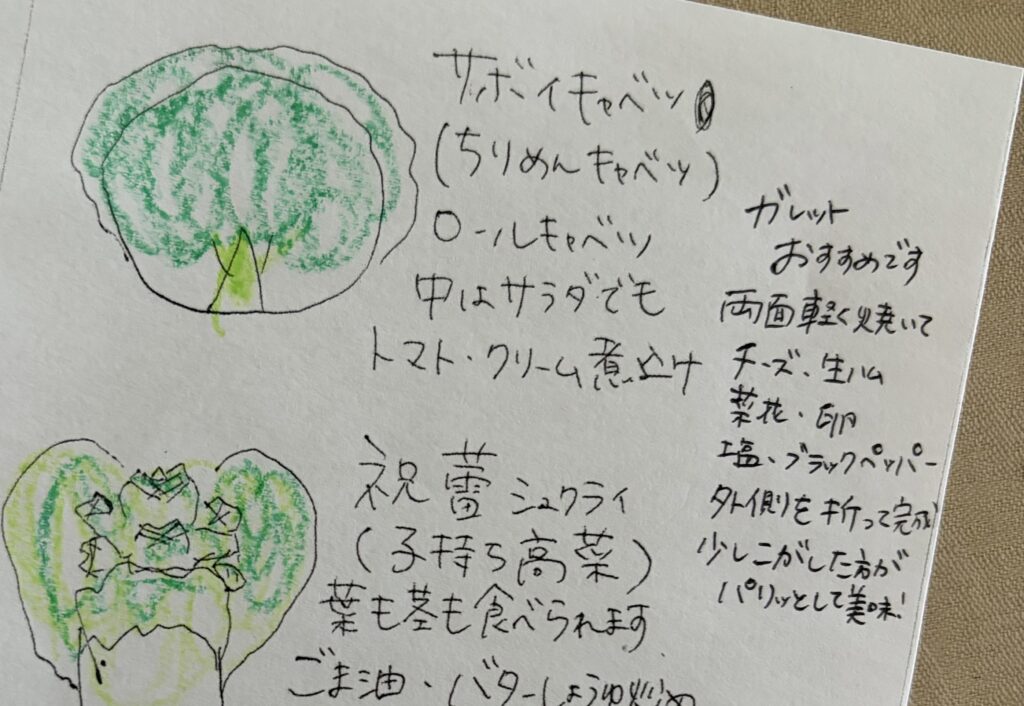 サボイキャベツ
(ちりめんキャベツ)
ロールキャベツ
中はサラダでも
トマト・クリーム煮込け
ガレット
おすすめです
両面軽く焼いて
チーズ、生ハム
菜花・卵
塩、ブラックペッパー
外側を折って完成
少しこがした方が
パリッとして美味!
祝蕾シュクライ
(子持ち高菜)
葉も茎も食べられます
ごま油・バターしょうゆ炒め